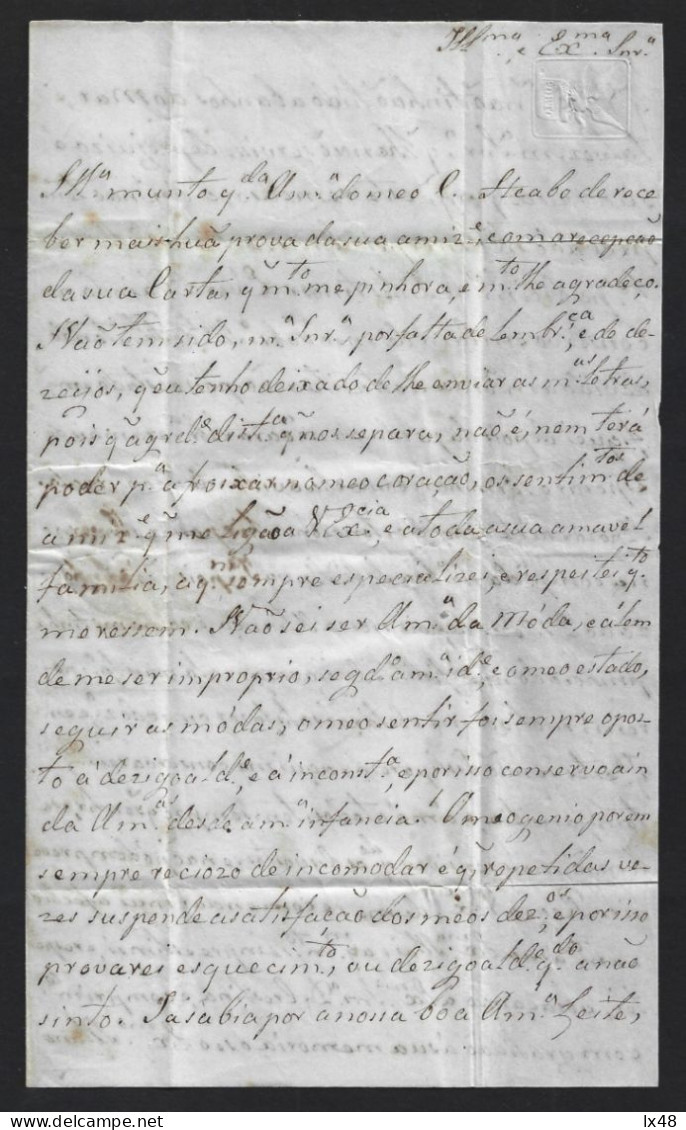 Illma e Exma Snra
Illa munto qda Ama do meo C. Acabo de rece
ber mais huã prova da sua amize, com a recepção
da sua Carta, q mto me pinhora, e mto lhe agradeço.
Não tem sido, ma Snra, por falta de Lembrça, e de de-
zeijos, q eu tenho deixado de lhe enviar as mas Letras,
pois q a grde dista q nos separa, não é, nem terá
poder pa afroixar no meo coração, os sentimtos de
amize q me ligão a V Excia, e a toda a sua amavel
familia, a qm sempre especializei, e respeitei qto
meressem. Não sei ser Ama da Móda, e álem
de me ser improprio, segdo a ma ide, e o meo estado,
seguir as módas, o meo sentir foi sempre opos-
to á dezigoalde, e á inconsta, e por isso conservo ain
da Amas desde a ma infancia. O meo genio porem
sempre reciozo de incomodar é q repetidas ve-
zes suspende a satisfacão dos méos dezos, e por isso
provarei esquecimto, ou dezigoalde qdo a não
sinto. Ja sabia por a nossa boa Ama Leite,
lx48